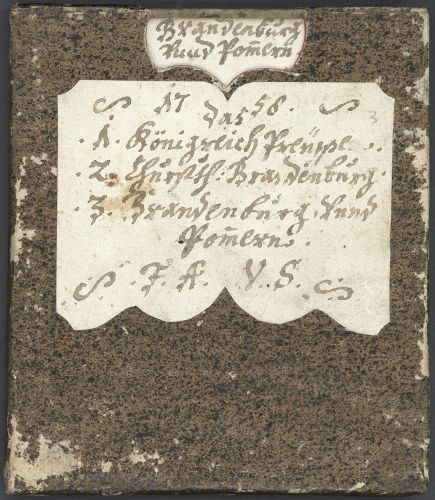 Brandenburg
Vnnd Pom̄ern
17 58.
Das
.1. Königreich Preüße
.2. Churfūſ: Brandenburg.
.3. Brandenburg Vnnd
Pom̄ern.
. F. A. V. S.
3